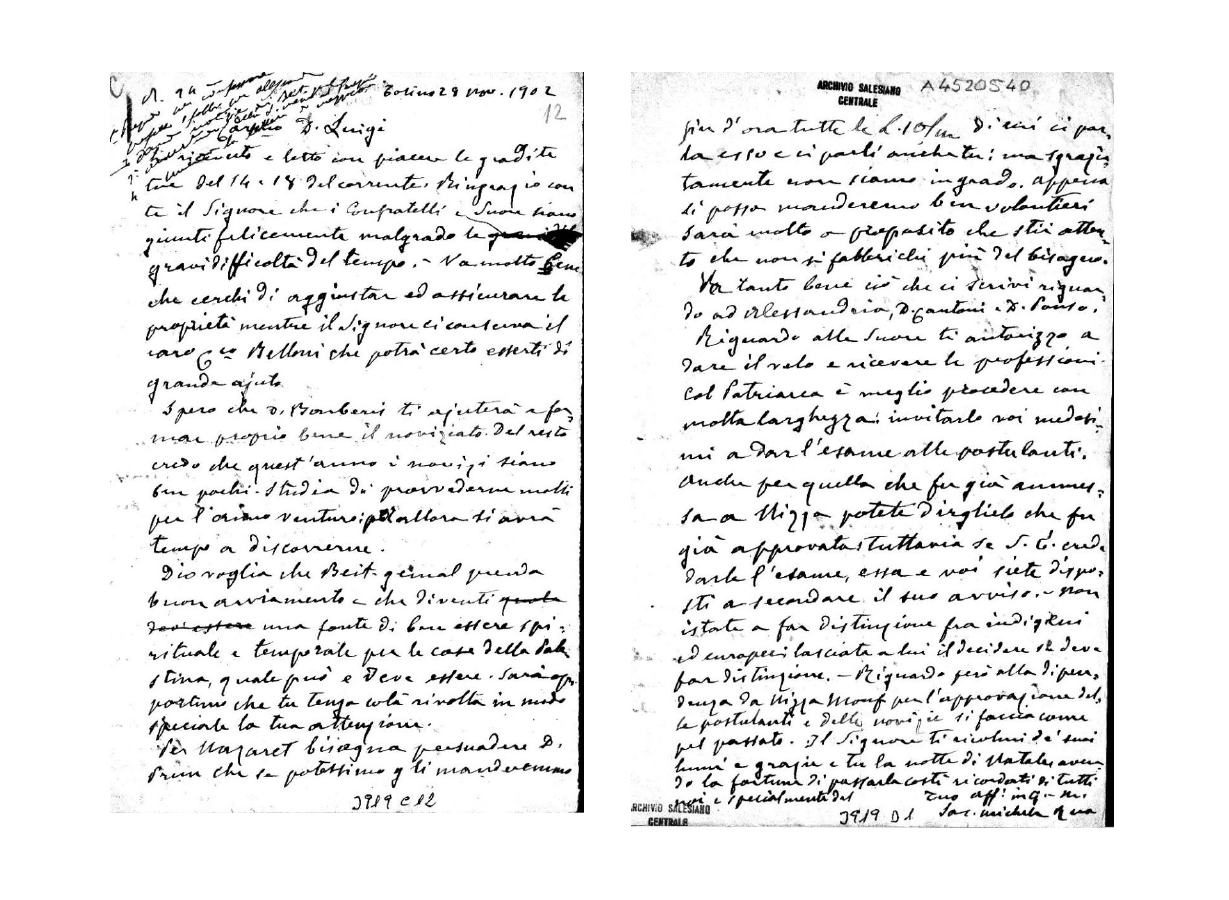 Torino 28 nov. 1902
12
Carissimo D. Luigi
ricevuto e letto con piacere le gradite
tue del 14 e 18 del corrente. Ringrazio con
te il Signore che i Confratelli e Suore siano
giunti felicemente malgrado le
gravi difficoltà del tempo. - Va molto bene
che cerchi di aggiustar ed assicurare le
proprietà mentre il Signore ci conserva il
caro Belloni che potrà certo esserti di
grande ajuto
Spero che D. ti ajuterà a for-
mar proprio bene il noviziato. Del resto
credo che quest'anno i novizi siano
ben pochi. Studia di provvederne molti
per l'anno venturo: allora si avrà
tempo a discorrerne.
Dio voglia che Beit-gemal prenda
buon avviamento e che diventi quale
deve essere una fonte di ben essere spi-
rituale e temporale per le case della Pale
stina, quale può e deve essere. Sarà op-
portuno che tu tenga colà rivolta in modo
speciale la tua attenzione.
Per Nazaret bisogna persuadere D.
Prun che se potessimo gli manderemmo
J919 C12
ARCHIVIO SALESIANO
CENTRALE
A4520540
fin d'ora tutte le L. 10/m di cui ci par-
la esso e ci parli anche tu: ma sgrazia-
tamente non siamo in grado. Appena
si possa manderemo ben volentieri
Sarà molto a proposito che stii atten-
to che non si fabbrichi più del bisogno.
Va tanto bene ciò che ci scrivi riguar
do ad Alessandria, D. Cantoni e D. Ponso.
Riguardo alle Suore ti autorizzo a
dare il velo e ricevere le professioni.
Col Patriarca è meglio procedere con
molta larghezza: invitarlo voi medesi-
mi a dar l'esame alle postulanti.
Anche per quella che fu già ammes-
sa a Nizza potete dirglielo che fu
già approvata: tuttavia se S. E. crede
darle l'esame, essa e voi siete dispo-
sti a secondare il suo avviso. - Non
istate a far distinzione fra indigeni
ed europei: lasciate a lui il decidere se deve
far distinzione. - Riguardo però alla dipen-
denza da Nizza Monf. per l'approvazione del-
le postulanti e delle novizie si faccia come
pel passato. Il Signore ti ricolmi de' suoi
lumi e grazie e tu la notte di Natale aven-
do la fortuna di passarla costì ricordati di tutti
noi e specialmente del
Tuo aff. in G. M.
Sac. Michele Rua
ARCHIVIO SALESIANO
CENTRALE
J919 D1